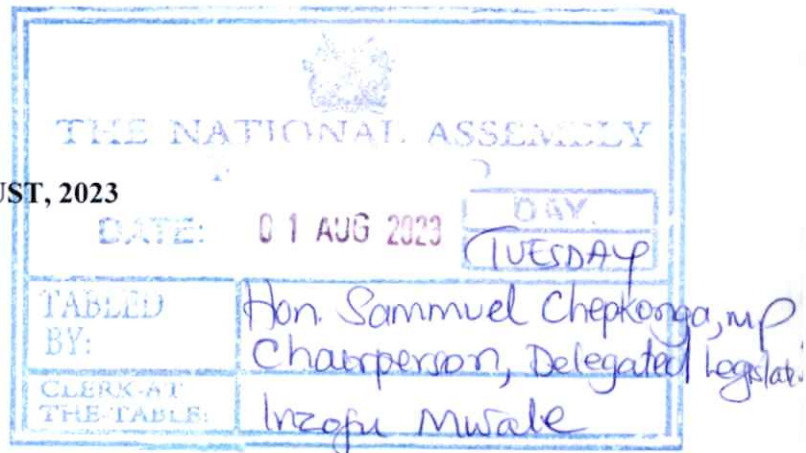 THE NATIONAL ASSEMBLY
UST, 2023
DATE: 01 AUG 2023
DAY.
TUESDAY
TABLED BY:
Hon. Sammuel Chepkonga, MP
Chairperson, Delegated Legislat.
CLERK-AT THE-TABLE:
Inzofu Mwale